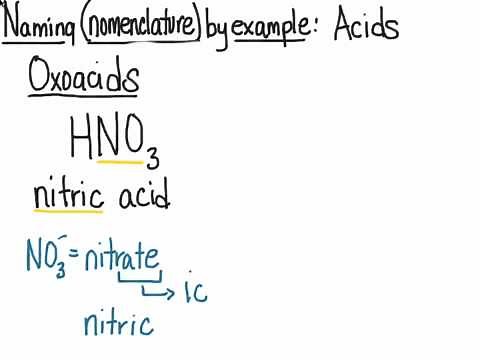 Naming (nomenclature) by example: Acids
Oxoacids
HNO₃
nitric acid
NO₃⁻ = nitrate
→ ic
nitric